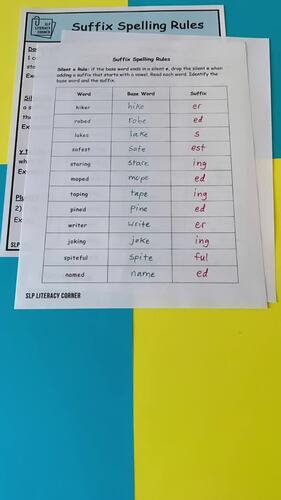 SLP
LITERACY
CORNER
Suffix Spelling Rules
Suffix Spelling Rules
Silent e Rule: if the base word ends in a silent e, drop the silent e when
adding a suffix that starts with a vowel. Read each word. Identify the
base word and the suffix.
Word Base Word Suffix
hiker hike er
robed robe ed
lakes lake s
safest safe est
staring stare ing
moped mope ed
taping tape ing
pined pine ed
writer write er
joking joke ing
spiteful spite ful
named name ed
SLP LITERACY CORNER